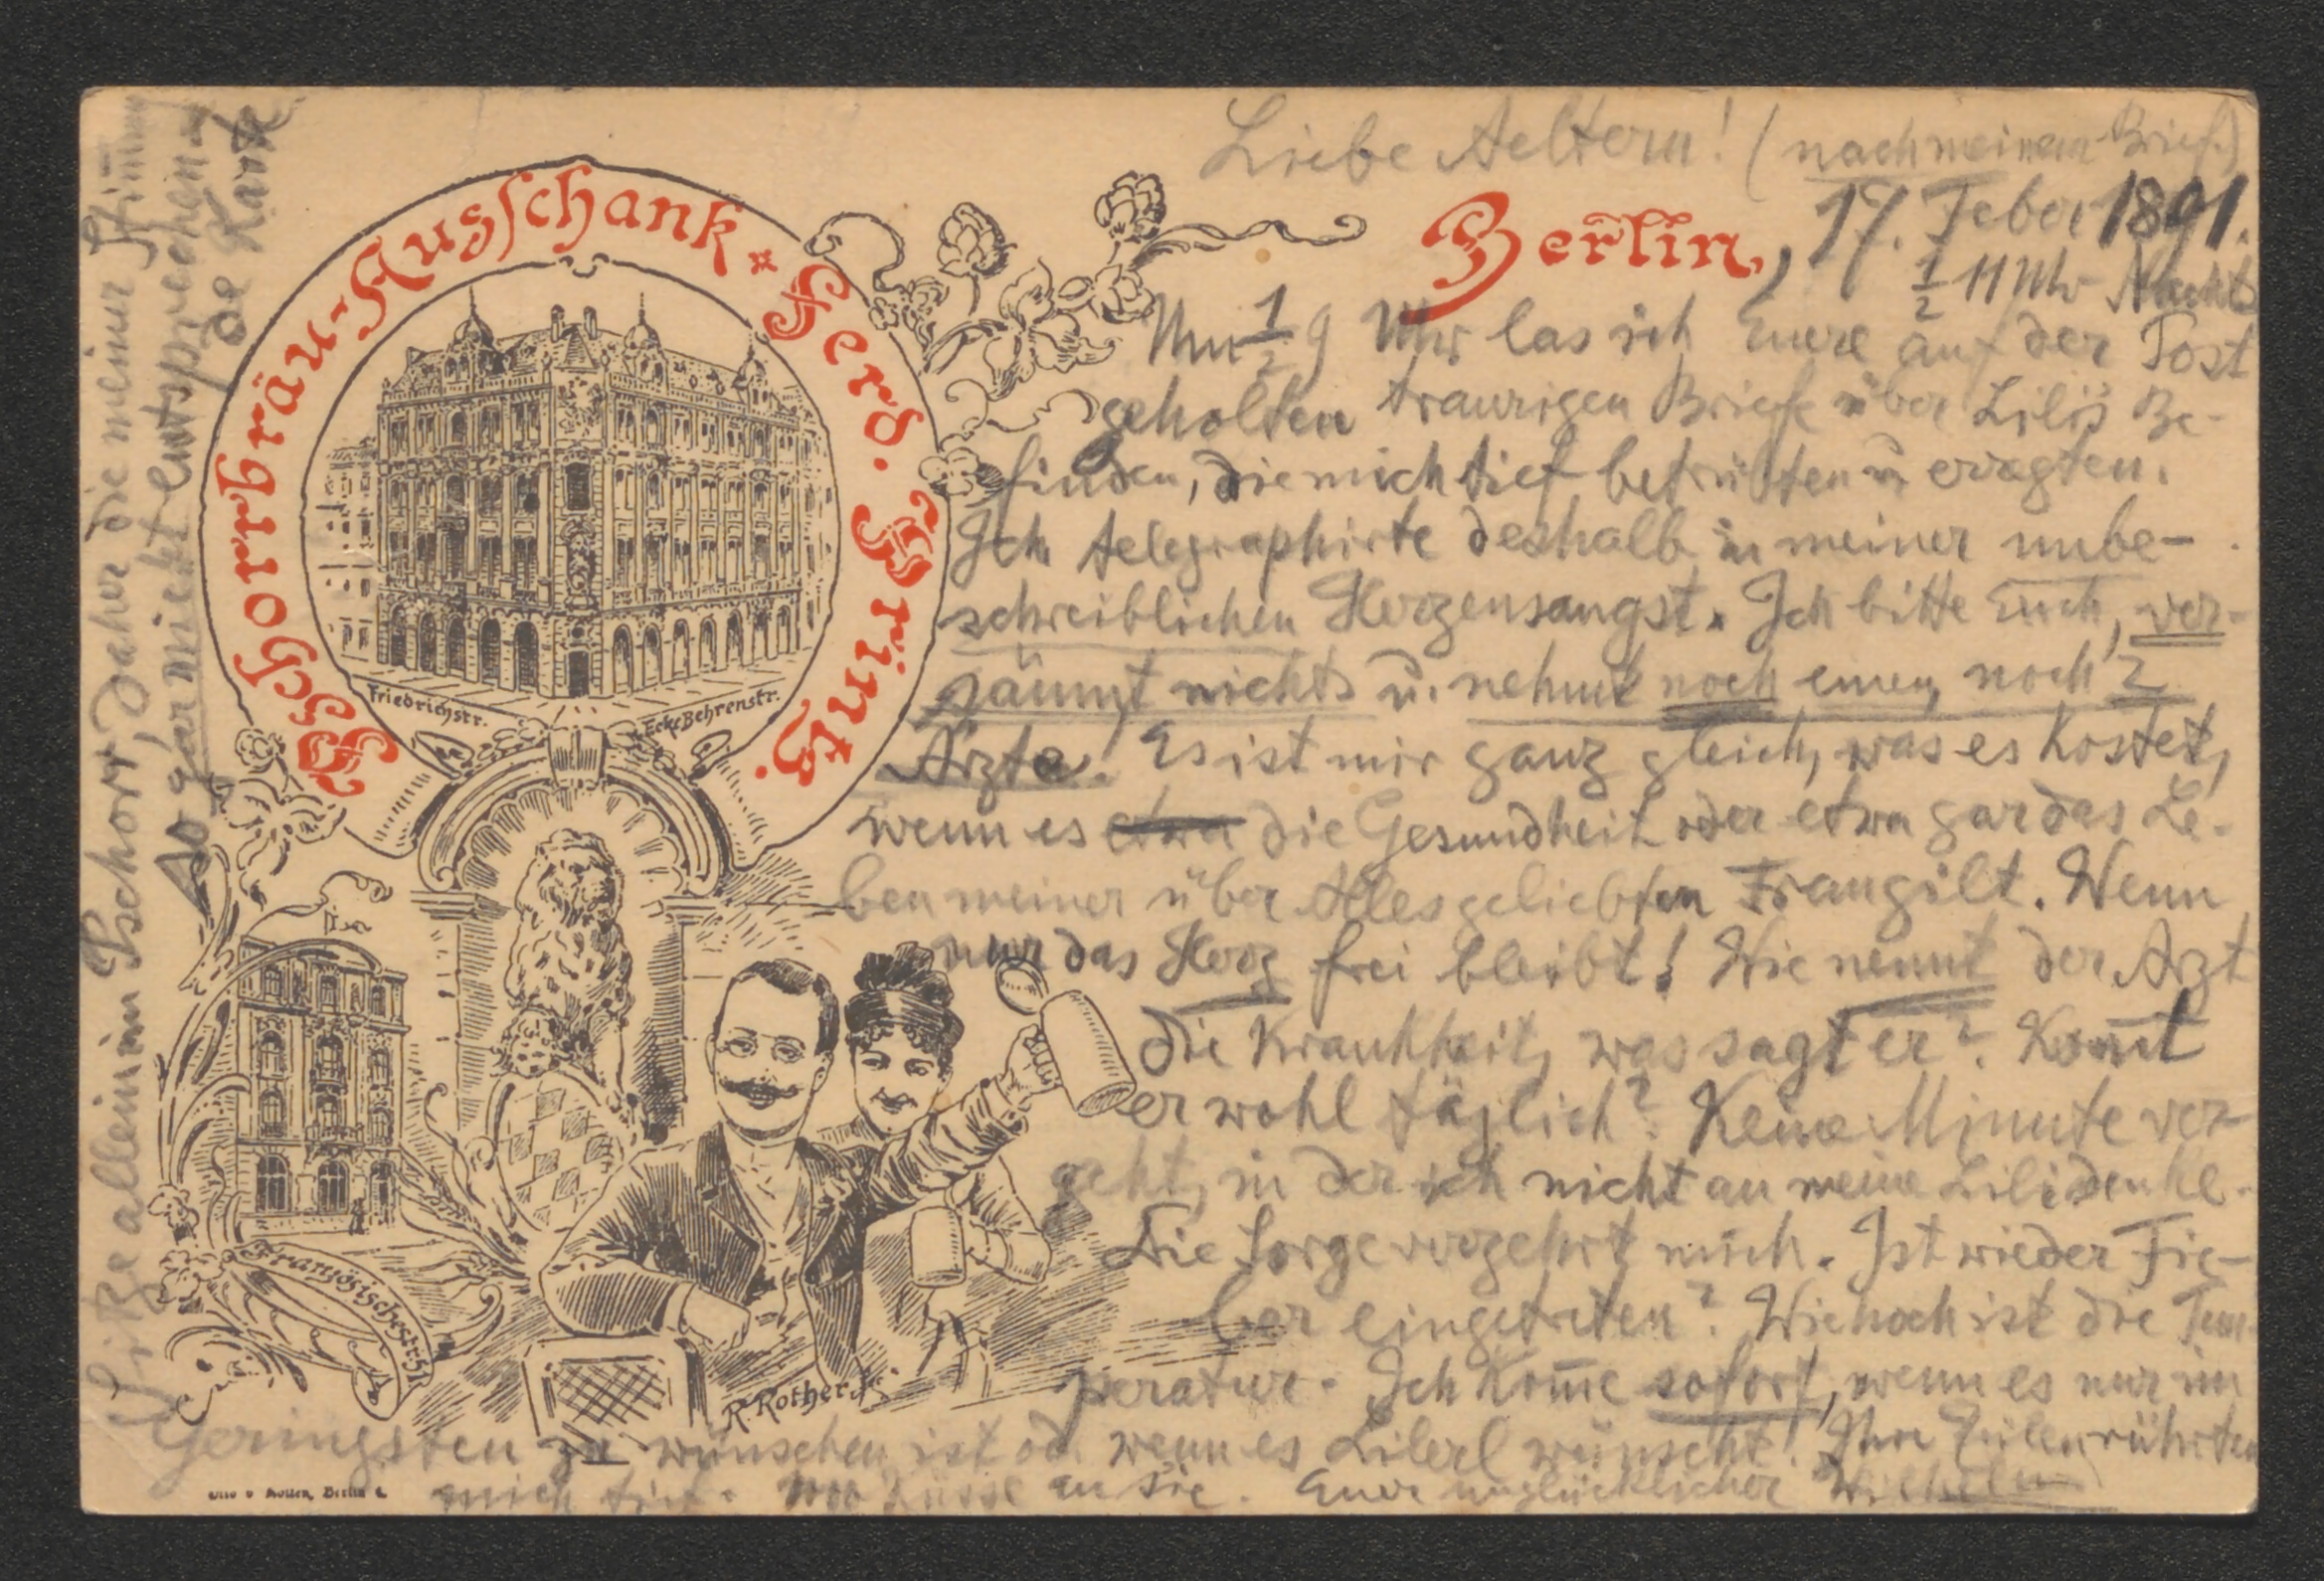 Liebe Aeltern! (nach meinem Brief)
Berlin, 17. Feber 1891.
½ 11 Uhr Nachts
Um ½ 9 Uhr las ich Euere auf der Post
geholten traurigen Briefe über Lili's Be-
finden, die mich tief betrübten u erregten.
Ich telegraphirte deshalb in meiner unbe-
schreiblichen Herzensangst. Ich bitte Euch, ver-
säumt nichts u. nehmt noch einen, noch 2
Ärzte. Es ist mir ganz gleich, was es kostet,
wenn es etwa die Gesundheit oder etwa gar das Le-
ben meiner über Alles geliebten Frau gilt. Wenn
nur das Herz frei bleibt! Wie nennt der Arzt
die Krankheit, was sagt er? Kom̄t
er wohl täglich? Keine Minute ver-
geht, in der ich nicht an meine Lili denke.
Die Sorge verzehrt mich. Ist wieder Fie-
ber eingetreten? Wie hoch ist die Tem-
peratur. Ich kom̄e sofort, wenn es nur im
Geringsten zu wünschen ist od. wenn es Lilerl wünscht. Ihre Zeilen rührten
mich tief. Küsse an Sie. Euer unglücklicher Wilhelm
Sitze allein im Pschorr, daher die meiner Stim̄ung
so gar nicht entsprechen-
de Karte
Pschorrbräu-Ausschank * Ferd. Printz.
Friedrichstr.
Ecke Behrenstr.
Französischestr.
R. Rother
Otto v Holten, Berlin C.